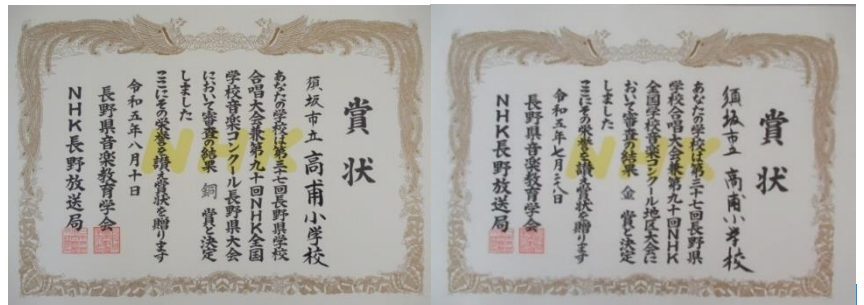 賞状
須坂市立 高甫小学校
あなたの学校は第三十七回長野県学校
合唱大会兼第九十回NHK全国
学校音楽コンクール長野県大会
において審査の結果 銅 賞と決定
しました
ここにその栄誉を讃え賞状を贈ります
令和五年八月十日
長野県音楽教育学会
NHK長野放送局
NHK
賞状
須坂市立 高甫小学校
あなたの学校は第三十七回長野県
学校合唱大会兼第九十回NHK
全国学校音楽コンクール地区大会に
おいて審査の結果 金 賞と決定
しました
ここにその栄誉を讃え賞状を贈ります
令和五年七月二八日
長野県音楽教育学会
NHK長野放送局
NHK